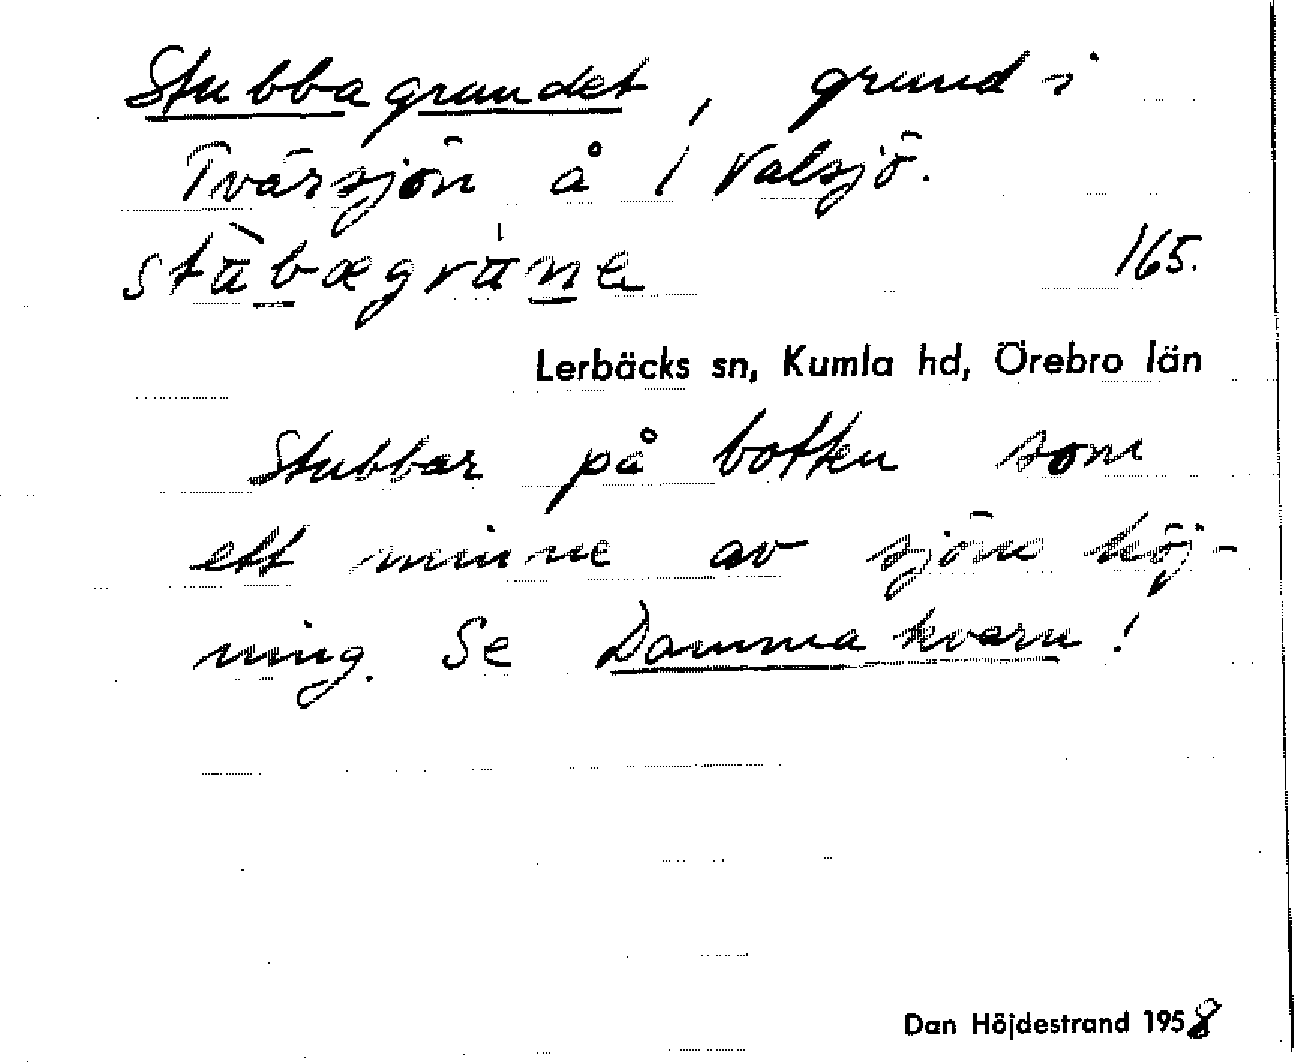 Stubbagrundet, grund i
Tvärsjön å 1 Valsjö.
stàbægránɐ 165.
Lerbäcks sn, Kumla hd, Örebro län
Stubbar på botten som
ett minne av sjöns höj-
ning. Se Damma kvarn!
Dan Höjdestrand 1958